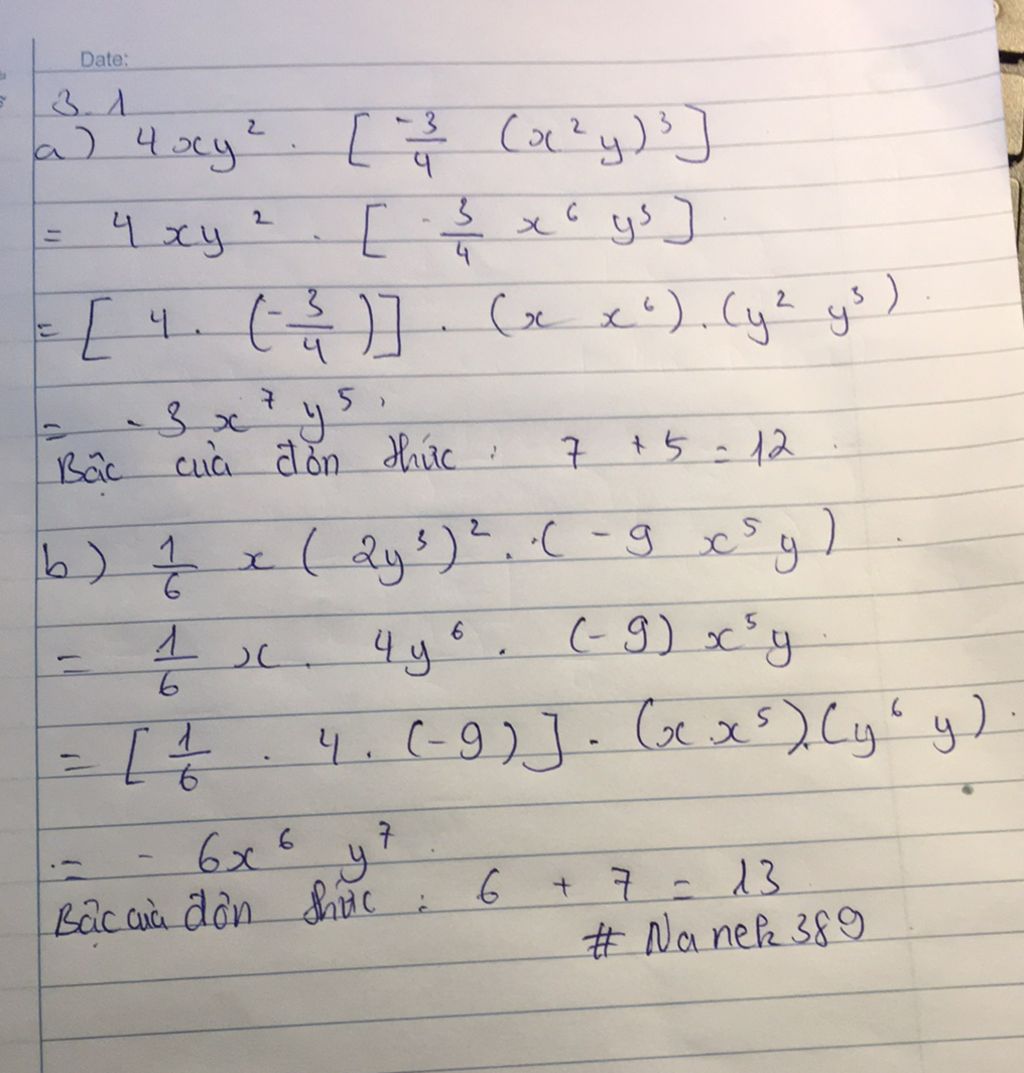 Date:
3.1
a) 4xy² . [-3/4 (x²y)³]
= 4xy² . [-3/4 x⁶ y³]
= [4 . (-3/4)] . (x x⁶) . (y² y³) .
= -3x⁷y⁵ .
Bậc của đơn thức : 7 + 5 = 12 .
b) 1/6 x (2y³)² . (-9 x⁵y) .
= 1/6 x . 4y⁶ . (-9) x⁵y .
= [1/6 . 4 . (-9)] . (x.x⁵).(y⁶ y) .
= -6x⁶ y⁷ .
Bậc của đơn thức : 6 + 7 = 13
# Nanek389